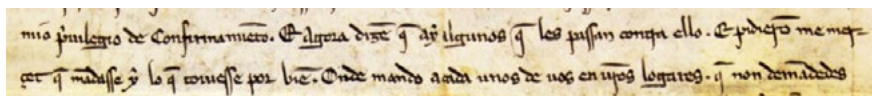 mio p̃uilegio de Confirmamiẽto. Et Agora dizẽ q̃ aỹ algunos q̃ les passan contra ello. E pidierõ me mer-
çet q̃ mãdasse ỹ lo q̃ touiesse por biẽ. Onde mando a cada unos de uos en ur̃os logares. q̃ non demãdedes